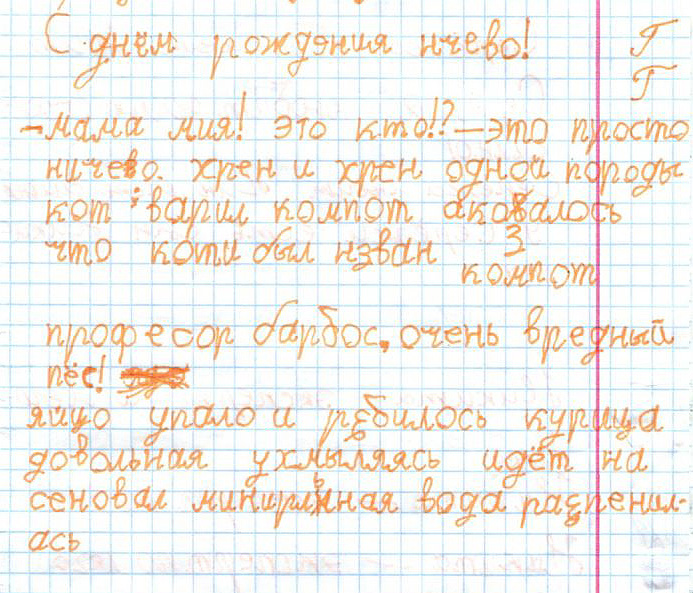 С днём рождэния нчево! Г
Г
-мама мия! это кто!?-это просто
ничево. хрен и хрен одной породы
кот варил компот акозалось
что коти был нзван компот
професор барбос, очень вредный
пёс!
яйцо упало и рзбилось курица
довольная ухмыляясь идёт на
сеновал минирльная вода распенил-
ась